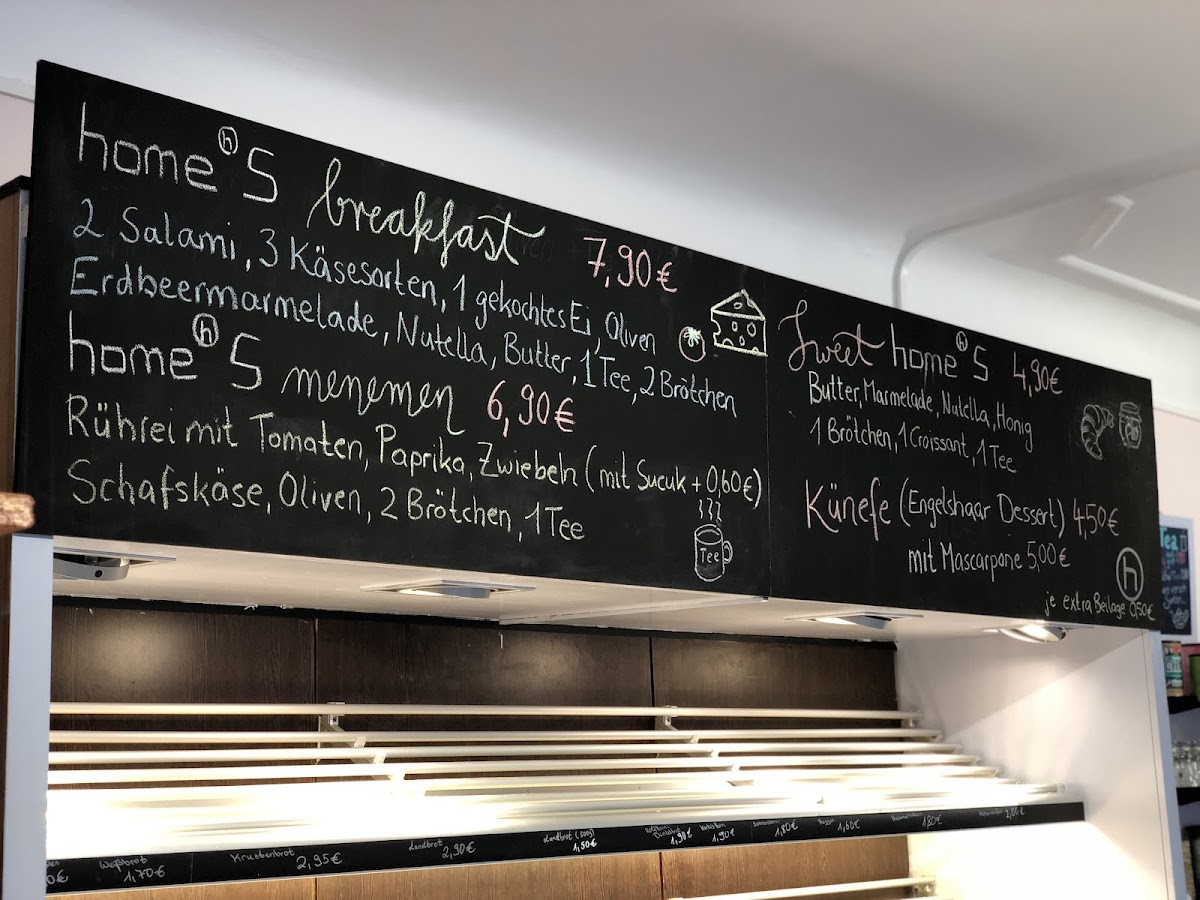 home's breakfast 7,90€
2 Salami, 3 Käsesorten, 1 gekochtes Ei, Oliven
Erdbeermarmelade, Nutella, Butter, 1 Tee, 2 Brötchen
home's menemen 6,90€
Rührei mit Tomaten, Paprika, Zwiebeln (mit Sucuk + 0,60€)
Schafskäse, Oliven, 2 Brötchen, 1 Tee
Tee
Sweet home's 4,90€
Butter, Marmelade, Nutella, Honig
1 Brötchen, 1 Croissant, 1 Tee
Künefe (Engelshaar Dessert) 4,50€
mit Mascarpone 5,00€
h
je extra Beilage 0,50€
Tea
Weißbrot 1,70€
Krustenbrot 2,95€
Landbrot 2,90€
Landbrot (500g) 1,50€
1,90€
1,90€
1,80€
1,60€
1,80€
2,00€